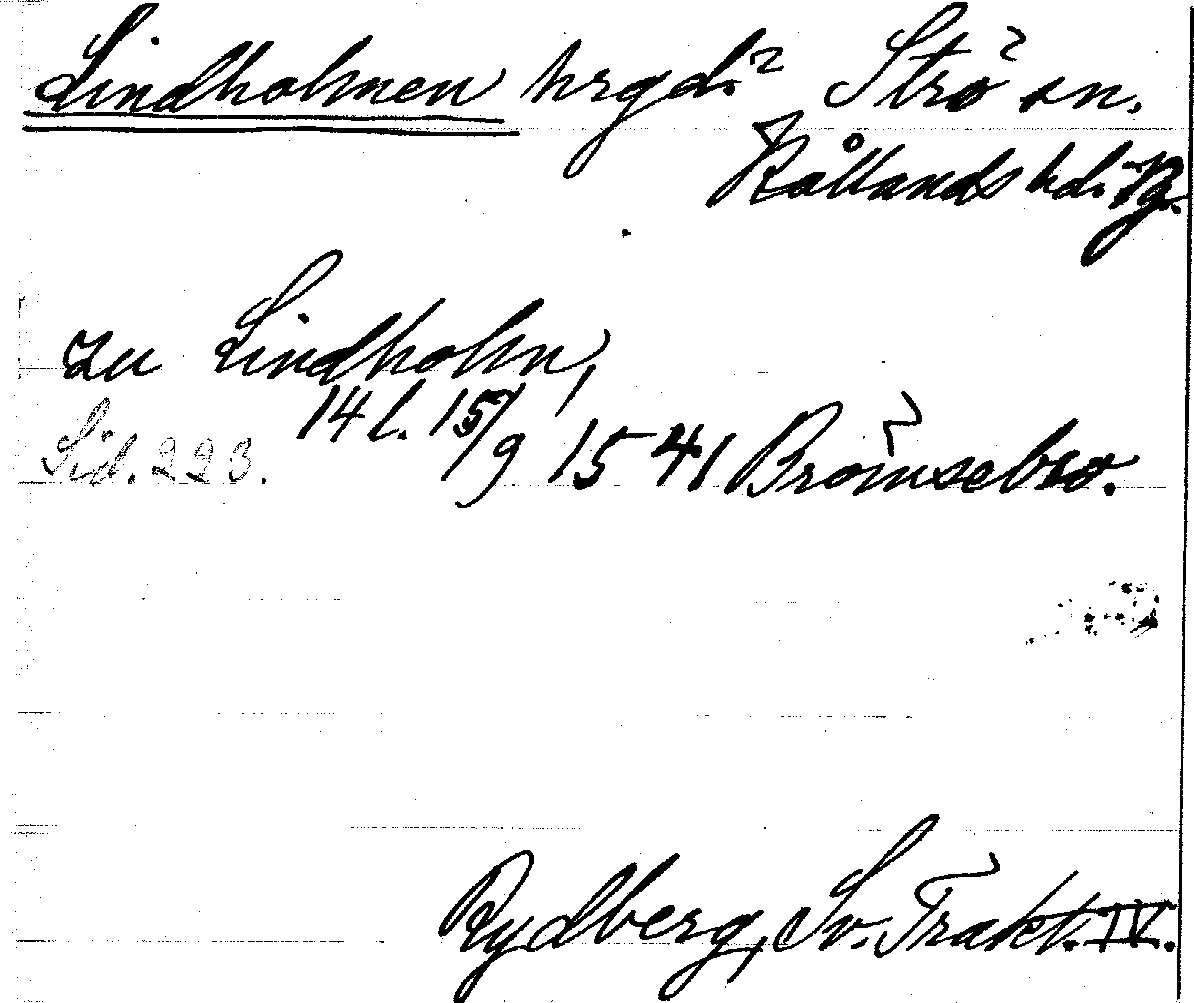 Lindholmen hrgd. Strö sn.
Kållands hd. Vg.
zu Lindholm,
14 l. 15/9 1541 Brömsebro.
Sid. 223.
Rydberg, Sv. Trakt. IV.